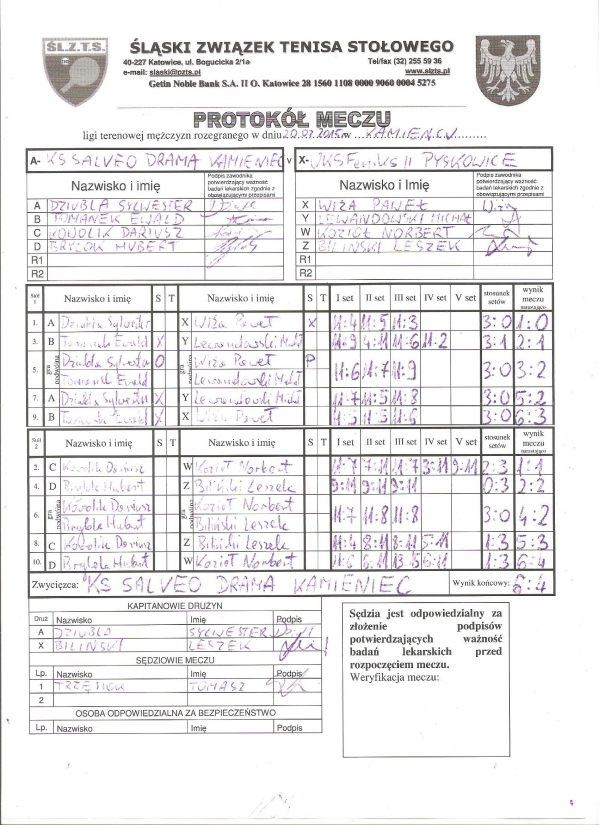 ŚL.Z.T.S.
ŚLĄSKI ZWIĄZEK TENISA STOŁOWEGO
40-227 Katowice, ul. Bogucicka 2/1a Tel/fax (32) 255 59 36
e-mail: slaski@pzts.pl www.slzts.pl
Getin Noble Bank S.A. II O. Katowice 28 1560 1108 0000 9060 0004 5275
PROTOKÓŁ MECZU
ligi terenowej mężczyzn rozegranego w dniu 20.07.2015 w KAMIENCU
A- KS SALVEO DRAMA KAMIENIEC v X- UKS Feniks II PYSKOWICE
Nazwisko i imię Podpis zawodnika potwierdzający ważność badań lekarskich zgodnie z obowiązującymi przepisami Nazwisko i imię Podpis zawodnika potwierdzający ważność badań lekarskich zgodnie z obowiązującymi przepisami
A DZIUBLA SYLWESTER X WIŻA PAWEŁ
B TOMANEK EWALD Y LEWANDOWSKI MICHAŁ
C KOWOLIK DARIUSZ W KOZIOŁ NORBERT
D BRYLOK HUBERT Z BILIŃSKI LESZEK
R1 R1
R2 R2
Stół 1 Nazwisko i imię S T Nazwisko i imię S T I set II set III set IV set V set stosunek setów wynik meczu narastająco
1. A Dziubla Sylwester X Wiża Paweł X 11:4 11:5 11:3 3:0 1:0
3. B Tomanek Ewald X Y Lewandowski Michał 11:9 4:11 11:6 11:2 3:1 2:1
5. gra podwójna Dziubla Sylwester O gra podwójna Wiża Paweł P 11:6 11:7 11:9 3:0 3:2
Tomanek Ewald Lewandowski Michał
7. A Dziubla Sylwester X Y Lewandowski Michał 11:7 11:5 11:8 3:0 5:2
9. B Tomanek Ewald X X Wiża Paweł 11:5 11:5 11:6 3:0 6:3
Stół 2 Nazwisko i imię S T Nazwisko i imię S T I set II set III set IV set V set stosunek setów wynik meczu narastająco
2. C Kowolik Dariusz W Kozioł Norbert 11:7 7:11 11:7 3:11 9:11 2:3 1:1
4. D Brylok Hubert Z Biliński Leszek 9:11 9:11 9:11 0:3 2:2
6. gra podwójna Kowolik Dariusz gra podwójna Kozioł Norbert 11:7 11:8 11:8 3:0 4:2
Brylok Hubert Biliński Leszek
8. C Kowolik Dariusz Z Biliński Leszek 11:4 8:11 8:11 5:11 1:3 5:3
10. D Brylok Hubert W Kozioł Norbert 11:6 6:11 13:15 6:11 1:3 6:4
Zwycięzca: KS SALVEO DRAMA KAMIENIEC Wynik końcowy: 6:4
KAPITANOWIE DRUŻYN
Druż Nazwisko Imię Podpis
A DZIUBLA SYLWESTER
X BILIŃSKI LESZEK
SĘDZIOWIE MECZU
Lp. Nazwisko Imię Podpis
1 TRZĘSIOK TOMASZ
2
OSOBA ODPOWIEDZIALNA ZA BEZPIECZEŃSTWO
Lp. Nazwisko Imię Podpis
Sędzia jest odpowiedzialny za
złożenie podpisów
potwierdzających ważność
badań lekarskich przed
rozpoczęciem meczu.
Weryfikacja meczu: